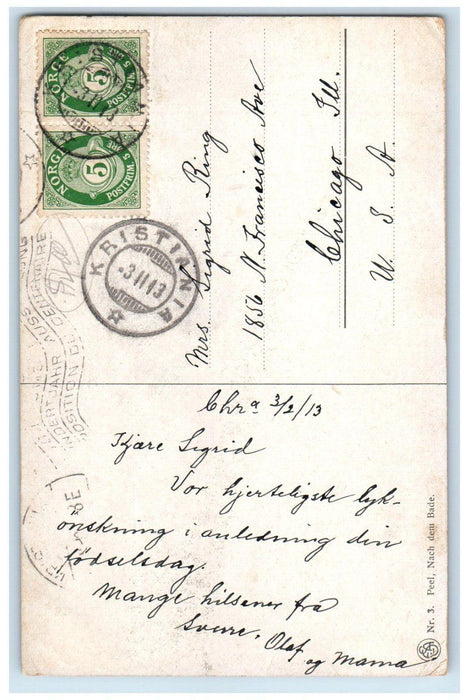 NORGE
5
POSTFRIM. 5 ØRE
NORGE
5
POSTFRIM. 5 ØRE
KRISTIANIA
-3 II 13
Mrs. Sigrid Ring
1856 N. Francisco Ave
Chicago Ill.
U. S. A.
Chr.a 3/2/13
Kjære Sigrid
Vor hjerteligste lyk-
önskning i anledning din
födselsdag.
Mange hilsener fra
Sverre, Olaf
og Mama
Nr. 3. Peel, Nach dem Bade.